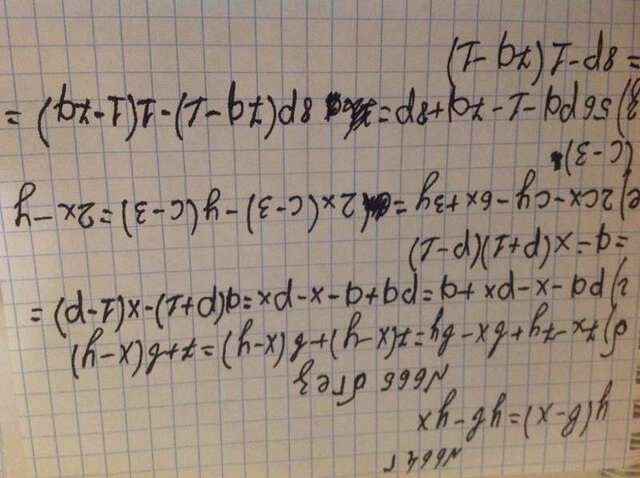 №664 г
y(в-x)=yв-yx
№665 бгез
б) 7x-7y+вx-вy=7(x-y)+в(x-y)=7+в(x-y)
г) pq-x-px+q=pq+q-x-px=q(p+1)-x(1-p)=
=q-x(p+1)(p-1)
е) 2cx-cy-6x+3y=(2x(c-3)-y(c-3)=2x-y
(c-3)
з) 56pq-1-7q+8p=8p(7q-1)-1(1-7q)=
=8p-1(7q-1)